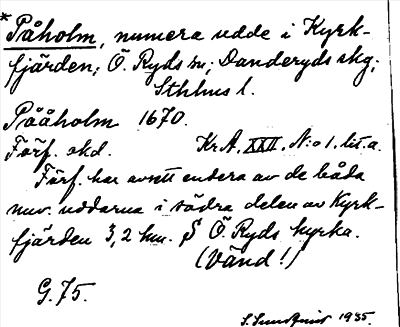 *Påholm, numera udde i Kyrk-
fjärden; Ö. Ryds sn; Danderyds skg;
Sthlms l.
Pååholm 1670.
Förf. skd. Kr.A. XXII, N:o 1. lit. a.
Förf. har avsett endera av de båda
nuv. uddarna i södra delen av Kyrk-
fjärden 3,2 km. S Ö. Ryds kyrka.
(Vänd!)
G. 75.
1935